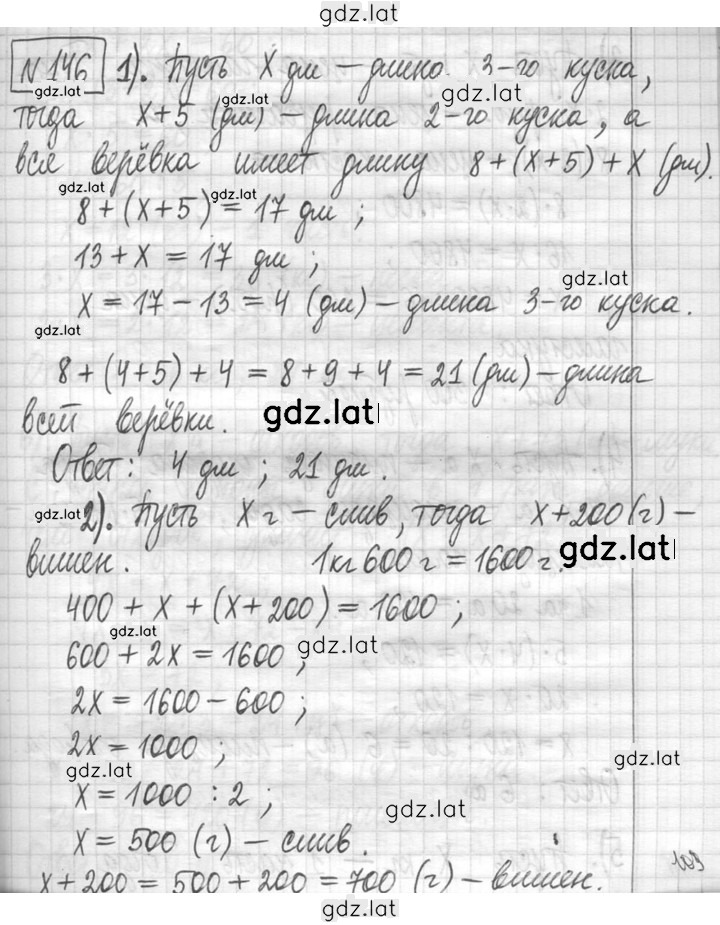 gdz.lat
№ 146 1). Пусть X дм – длина 3-го куска,
gdz.lat gdz.lat gdz.lat
тогда X+5 (дм) – длина 2-го куска, а
вся верёвка имеет длину 8+(X+5)+X (дм).
gdz.lat gdz.lat
8+(X+5)=17 дм;
13+X=17 дм;
gdz.lat
X=17-13=4 (дм) – длина 3-го куска.
gdz.lat
8+(4+5)+4=8+9+4=21 (дм) – длина
всей верёвки. gdz.lat
Ответ: 4 дм; 21 дм.
gdz.lat 2). Пусть X г – слив, тогда X+200 (г) –
вишен. 1кг 600 г = 1600 г. gdz.lat
400+X+(X+200)=1600;
gdz.lat gdz.lat
600+2X=1600;
2X=1600-600;
2X=1000;
gdz.lat gdz.lat
X=1000:2;
gdz.lat
X=500 (г) – слив.
103
X+200=500+200=700 (г) – вишен.
gdz.lat